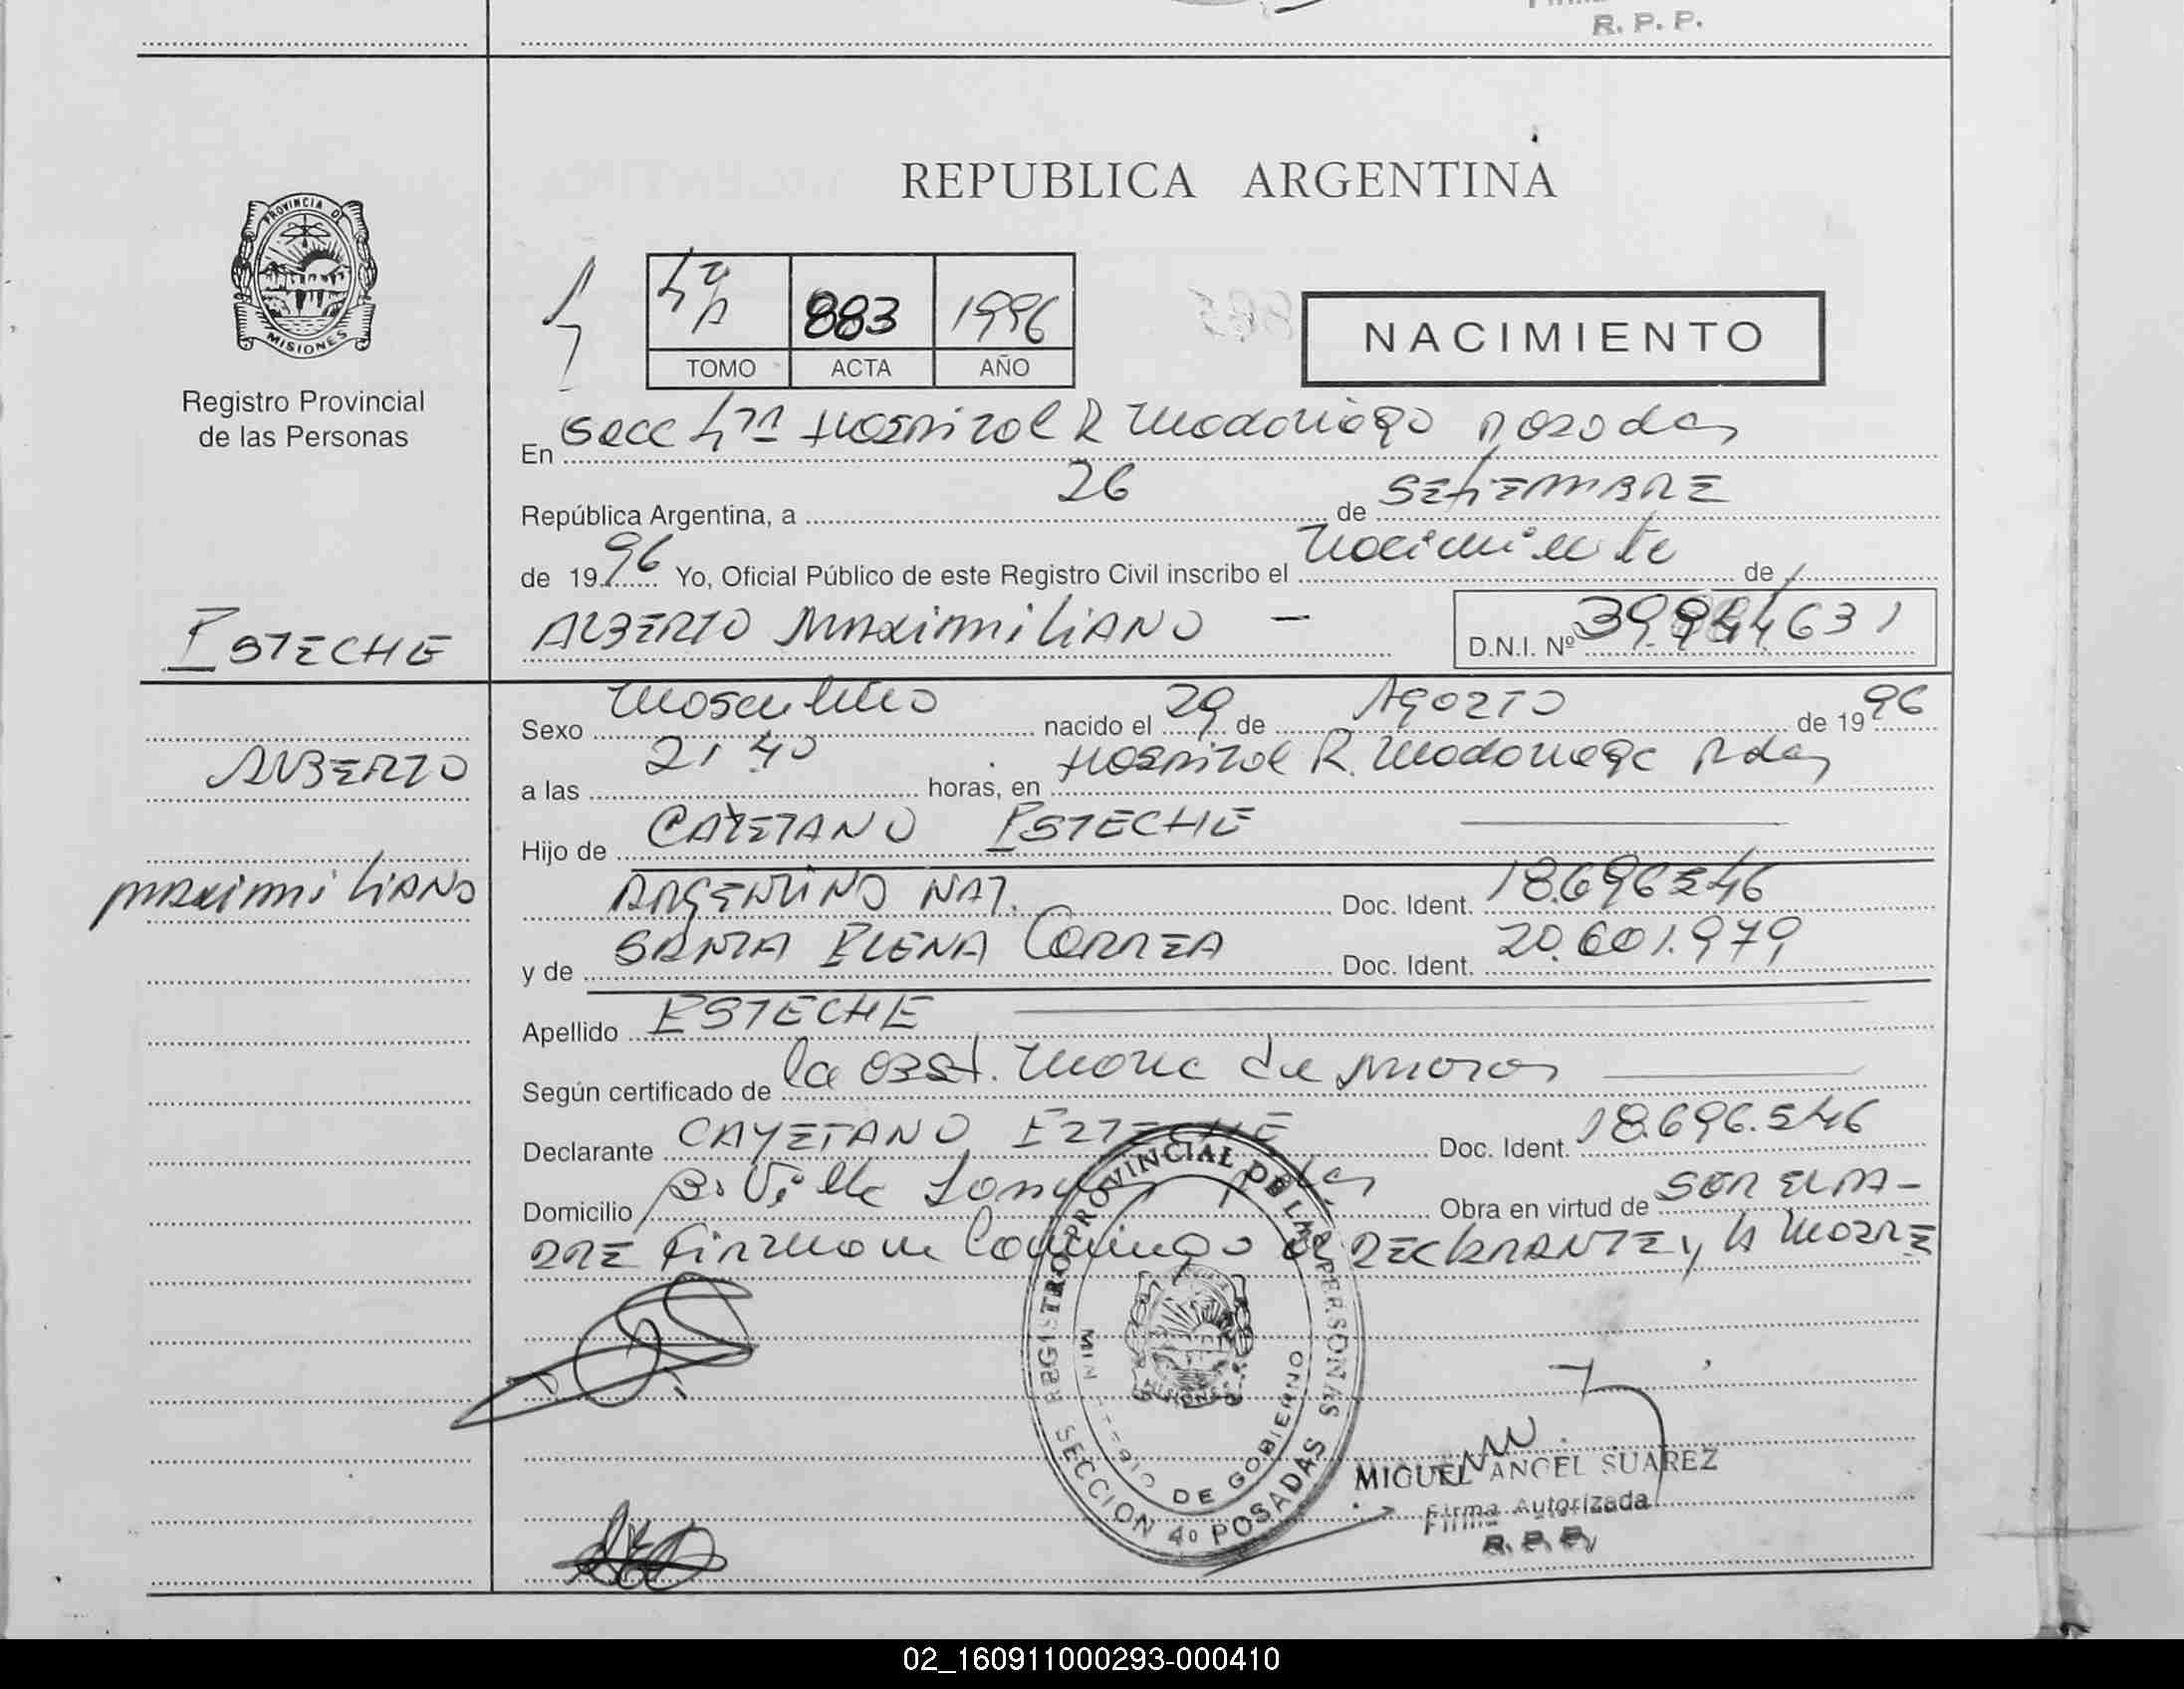 R. P. P.
PROVINCIA DE
MISIONES
Registro Provincial
de las Personas
REPUBLICA ARGENTINA
4ª 883 1996
TOMO ACTA AÑO
NACIMIENTO
En Secc 4ta Hospital R Madariaga Posadas
República Argentina, a 26 de SEtiEMBRE
de 1996 Yo, Oficial Público de este Registro Civil inscribo el Nacimiento de
ESTECHE
ALBERTO MAXiMiLiANO —
D.N.I. Nº
ALBERTO
MAXiMiLiANO
Sexo Masculino nacido el 29 de AgOSTO de 1996
a las 21 40 horas, en Hospital R. Madariaga Pdas
Hijo de CAYETANO ESTECHE
ARGENTINO NAT. Doc. Ident. 18.696.546
y de SANTA ELENA CORREA Doc. Ident. 20.601.979
Apellido ESTECHE
Según certificado de la OBSt. Maria de
Declarante CAYETANO EZTECHE Doc. Ident. 18.696.546
Domicilio Bº Villa Pdas Obra en virtud de SER EL PA-
DRE Firman Conmigo el DECLARANTE y LA MADRE
REGISTRO PROVINCIAL DE LAS PERSONAS
MINISTERIO DE GOBIERNO
MISIONES
SECCION 4º POSADAS
MIGUEL ANGEL SUAREZ
Firma Autorizada
R. P. P.
02_160911000293-000410